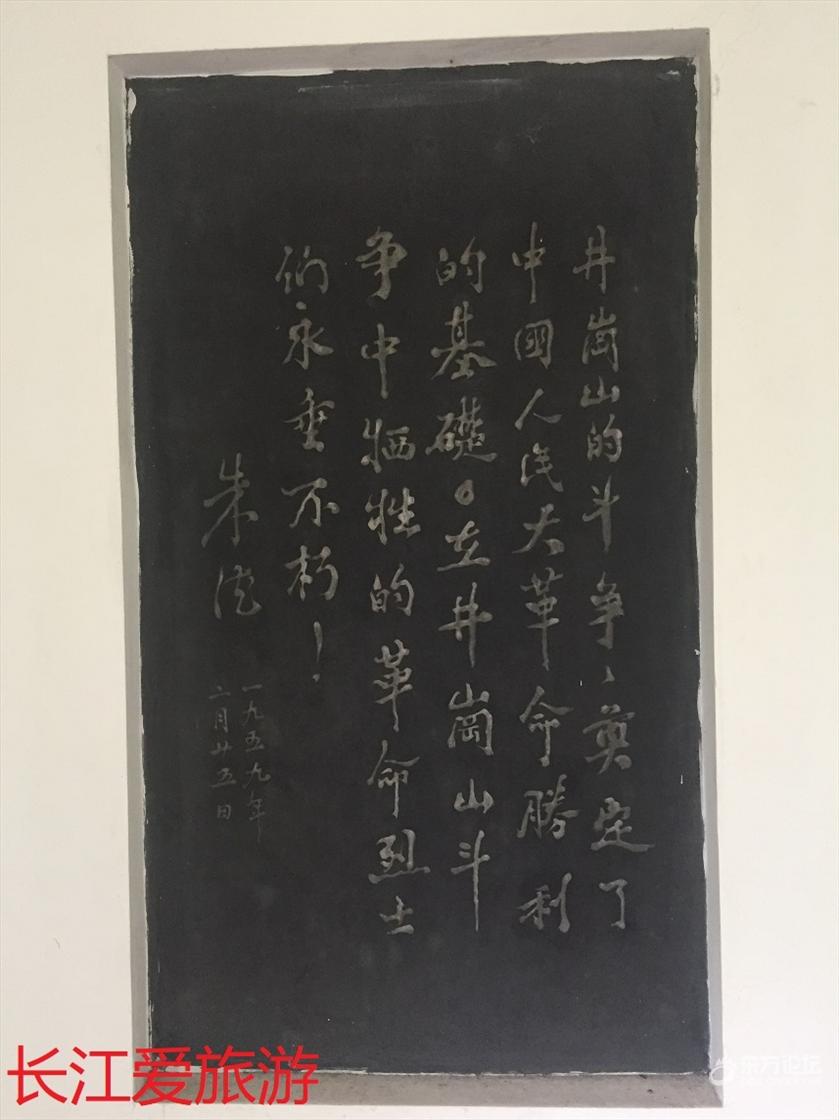 井崗山的斗争、奠定了
中國人民大革命勝利
的基礎。在井崗山斗
争中牺牲的革命烈士
们永垂不朽！
朱德
一九五九年
二月廿五日
长江爱旅游
东方论坛